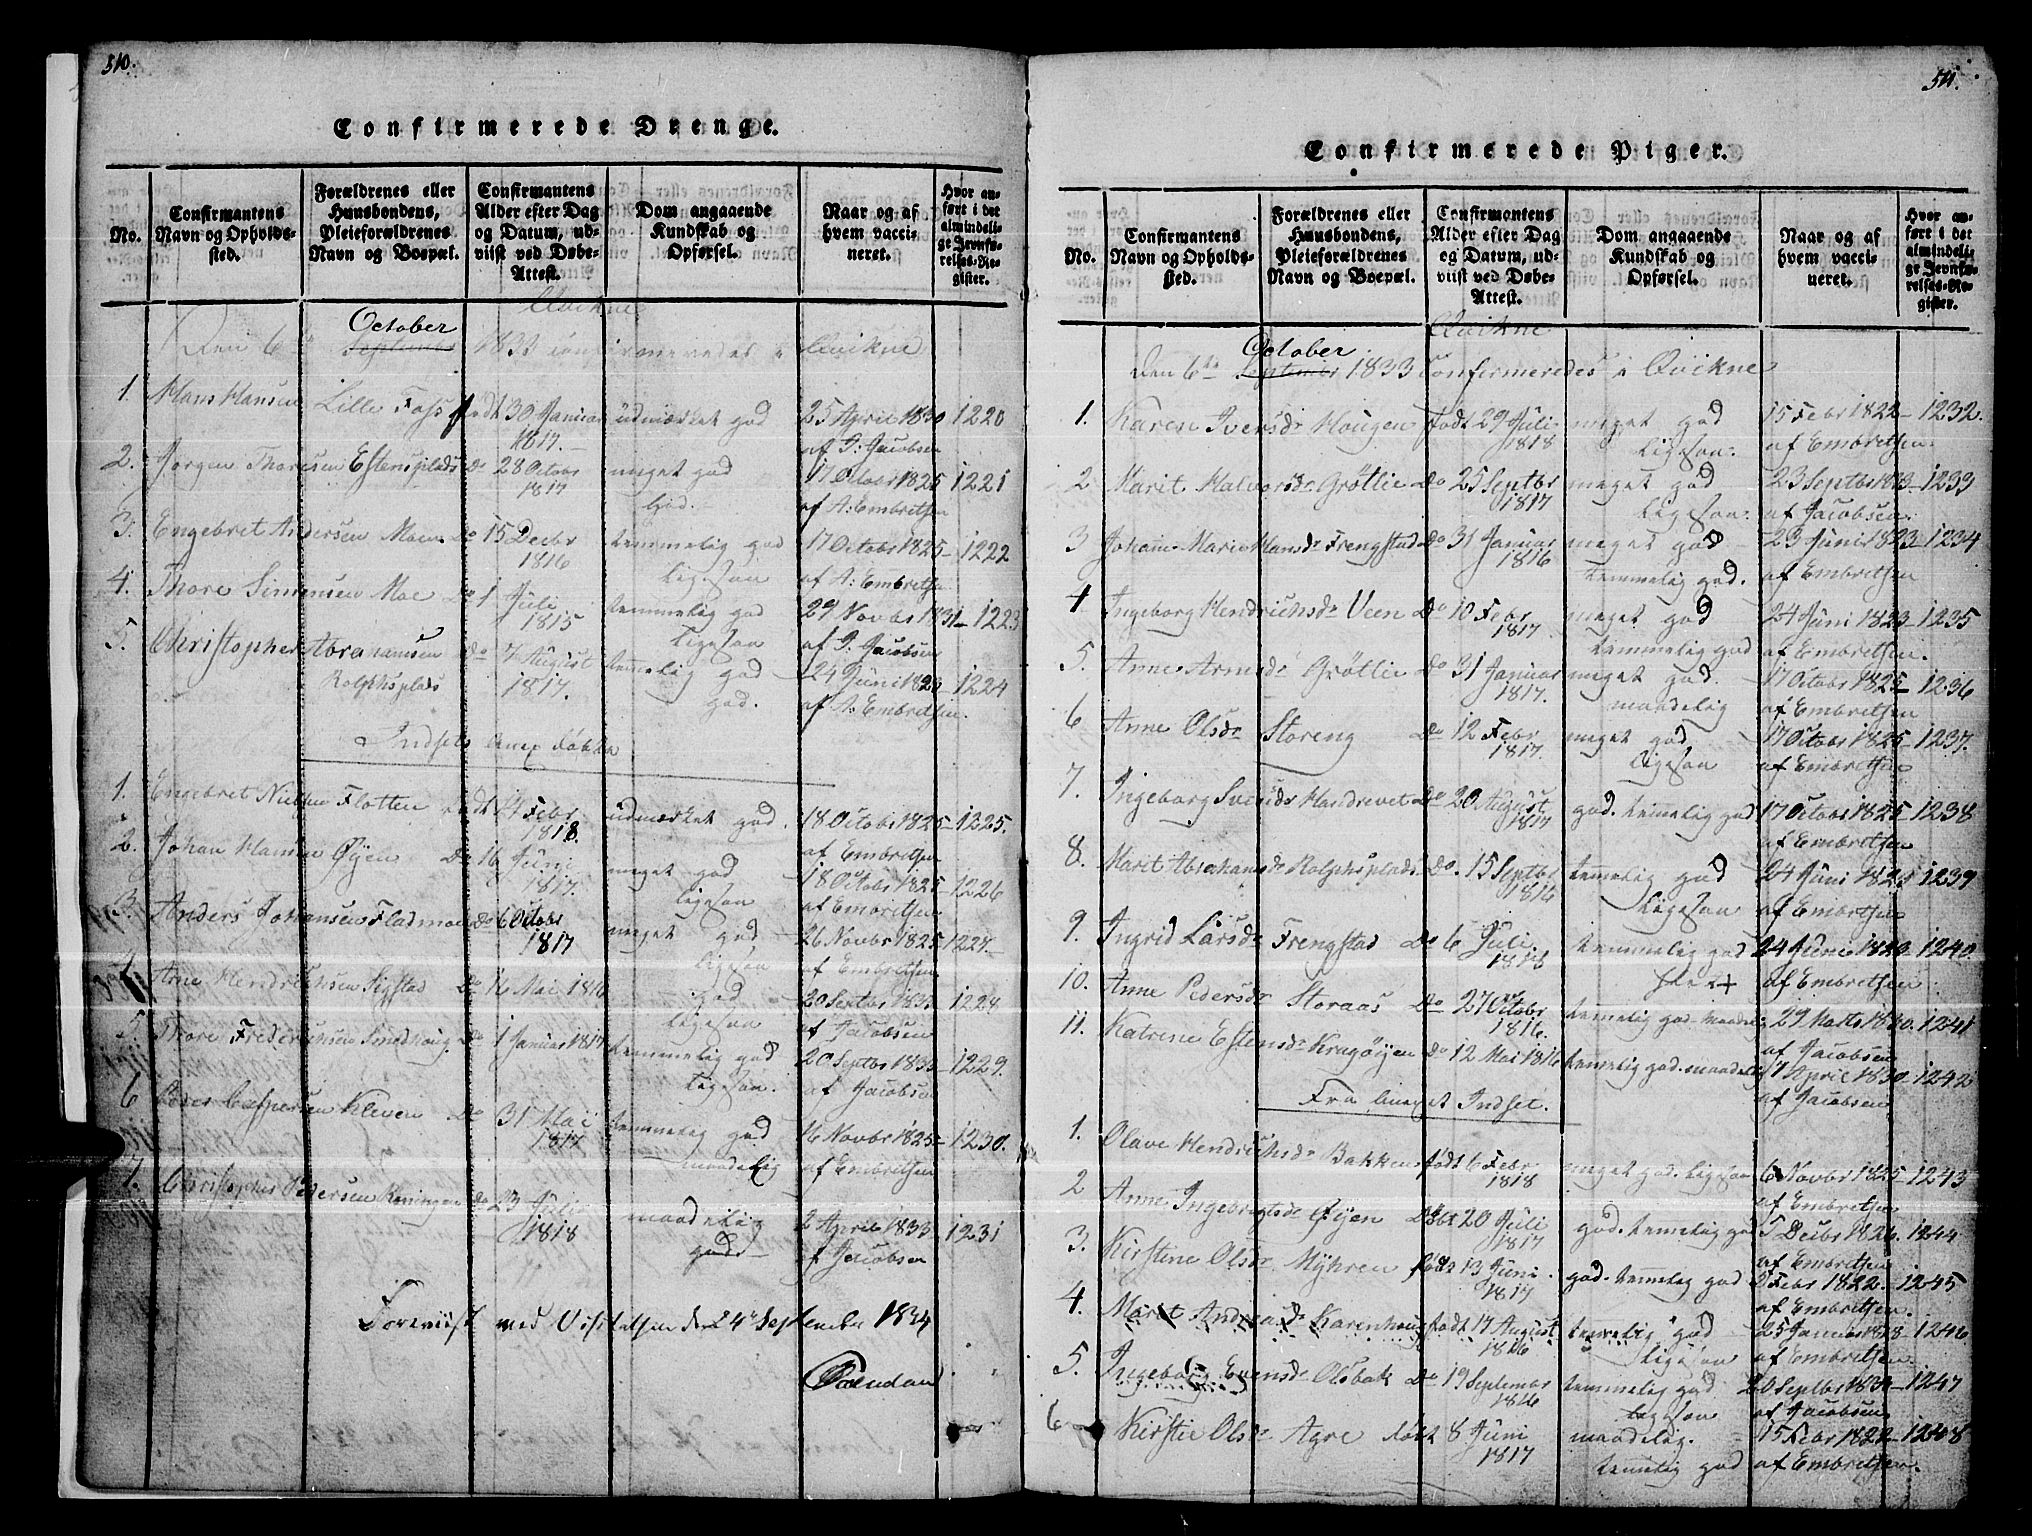 510.
Confirmerede Drenge.
No.
Confirmantens Navn og Opholds-sted.
Forældrenes eller Huusbondens, Pleieforældrenes Navn og Boepæl.
Confirmantens Alder efter Dag og Datum, ud-viist ved Døbe-Attest.
Dom angaaende Kundskab og Opførsel.
Naar og af hvem vacci-neret.
Hvor an-ført i det almindeli-ge Jevnfø-relses-Re-gister.
Qvikne
October
Den 6te September 1833 confirmeredes i Qvikne
1. Hans Hansen Lille Foss født 30 Januar udmærket god 25 April 1830 1220
1817. af P: Jacobsen
2. Jørgen Thoresen Estensplads Do 28 Octobr meget god 17 Octobr 1825 1221
1817 God. af A: Embretsen
3. Engebret Andersen Moen Do 15 Decbr temmelig god 17 Octobr 1825 1222
1816 ligesaa af A: Embretsen
4. Thore Simensen Moe Do 1 Juli temmelig god 29 Novbr 1831 1223
1815 ligesaa af P. Jacobsen
5. Christopher Abrahamsen Do 7 August temelig god 24 Juni 1823 1224
Rolphsplads 1817. god. af A: Embretsen.
Indsets Anex
1. Engebret Nielsen Flotten født 14 Febr udmærket god. 18 Octobr 1825 1225.
1818. af Embretsen
2. Johan Hansen Øyen Do 16 Juni meget god 18 Octobr 1825 1226
1817. ligesaa af Embretsen
3. Anders Johansen Fladmoe Do 6 Octobr meget god 26 Novbr 1825 1227.
1817 ligesaa af Embretsen
4. Arne Hendrichsen Sigstad Do 16 Mai 1816 god 20 Septbr 1833 1228
ligesaa af Jacobsen
5. Thore Frederichsen Smedhoug Do 1 Januar 1817 temmelig god 20 Septbr 1833 1229.
ligesaa. af Jacobsen
6 Peder Caspersen Kleven Do 31 Mai temmelig god 16 Novbr 1825 1230.
1817 maadelig af Embretsen
7. Christopher Pedersen Do 23 Juli maadelig 2 April 1833 1231
1818 god af Jacobsen
Foreviist ved Visitatsen den 24de September 1834
511.
Confirmerede Piger.
No.
Confirmantens Navn og Opholds-sted.
Forældrenes eller Huusbondens, Pleieforældrenes Navn og Boepæl.
Confirmantens Alder efter Dag og Datum, ud-viist ved Døbe-Attest.
Dom angaaende Kundskab og Opførsel.
Naar og af hvem vacci-neret.
Hvor an-ført i det almindeli-ge Jevnfø-relses-Re-gister.
Qvikne
October
Den 6te September 1833 Confirmeredes i Qvikne
1. Karen Iversdr Hougen født 29 Juli meget god 15 Febr 1822 1232.
1818 ligesaa. af Embretsen
2 Marit Halvorsdr Grøtlie Do 25 Septbr meget god 23 Septbr 1833 1233
1817 ligesaa. af Jacobsen.
3 Johane Marie Hansdr Frengstad Do 31 Januar meget god 23 Juni 1823 1234
1816 temmelig god. af Embretsen
4 Ingeborg Hendrichsdr Veen Do 10 Febr meget god 24 Juni 1823 1235
1817. temmelig god af Embretsen.
5. Anne Arnesdr Grøtlie Do 31 Januar meget god. 17 Octobr 1825 1236
1817. maadelig af Embretsen
6 Anne Olsdr Storeng Do 12 Febr meget god 17 Octobr 1825 1237.
1817. ligesaa af Embretsen
7. Ingeborg Svensdr Do 20 August god. temmelig god 17 Octobr 1825 1238
1817 af Embretsen
8. Marit Abrahamsdr Rolphsplads Do. 15 Septbr temmelig god 24 Juni 1823 1239
1816 ligesaa af Embretsen
9. Ingrid Larsdr Frengstad Do 6 Juli temmelig god 24 Juni 1823 1240.
af Embretsen
10. Anne Pedersdr Storaas Do 27 Octobr temelig god maadelig 29 Marts 1830. 1241
1816. af Jacobsen
11. Katrine Estensdr Kragøyen Do 12 Mai 1816 temelig god. maadelig 7 April 1830 1242
af Jacobsen
Fra Annexet Indset.
1. Olave Hendrichsdr Bakken født 6 Febr meget god. ligesaa 6 Novbr 1825 1243
1818 af Embretsen
2 Anne Ingebrigtsdr Øyen Do 20 Juli god. temelig god 5 Decbr 1826. 1244
1817 af Embretsen
3. Kirstine Olsdr Myhren født 13 Juni god. temmelig god Febr 1822 1245
1817 af Embretsen.
4. Marit Karenhoug født 17 August temmelig god 25 Januar 1828 1246
1816 ligesaa af Embretsen.
5. Ingeborg Evensdr Olsbak Do 19 September temmelig god 20 Septbr 1833 1247
1816 ligesaa af Jacobsen
6 Kirstie Olsdr Agre født 8 Juni maadelig. 15 Febr 1822 1248
1817 temelig god af Embretsen.